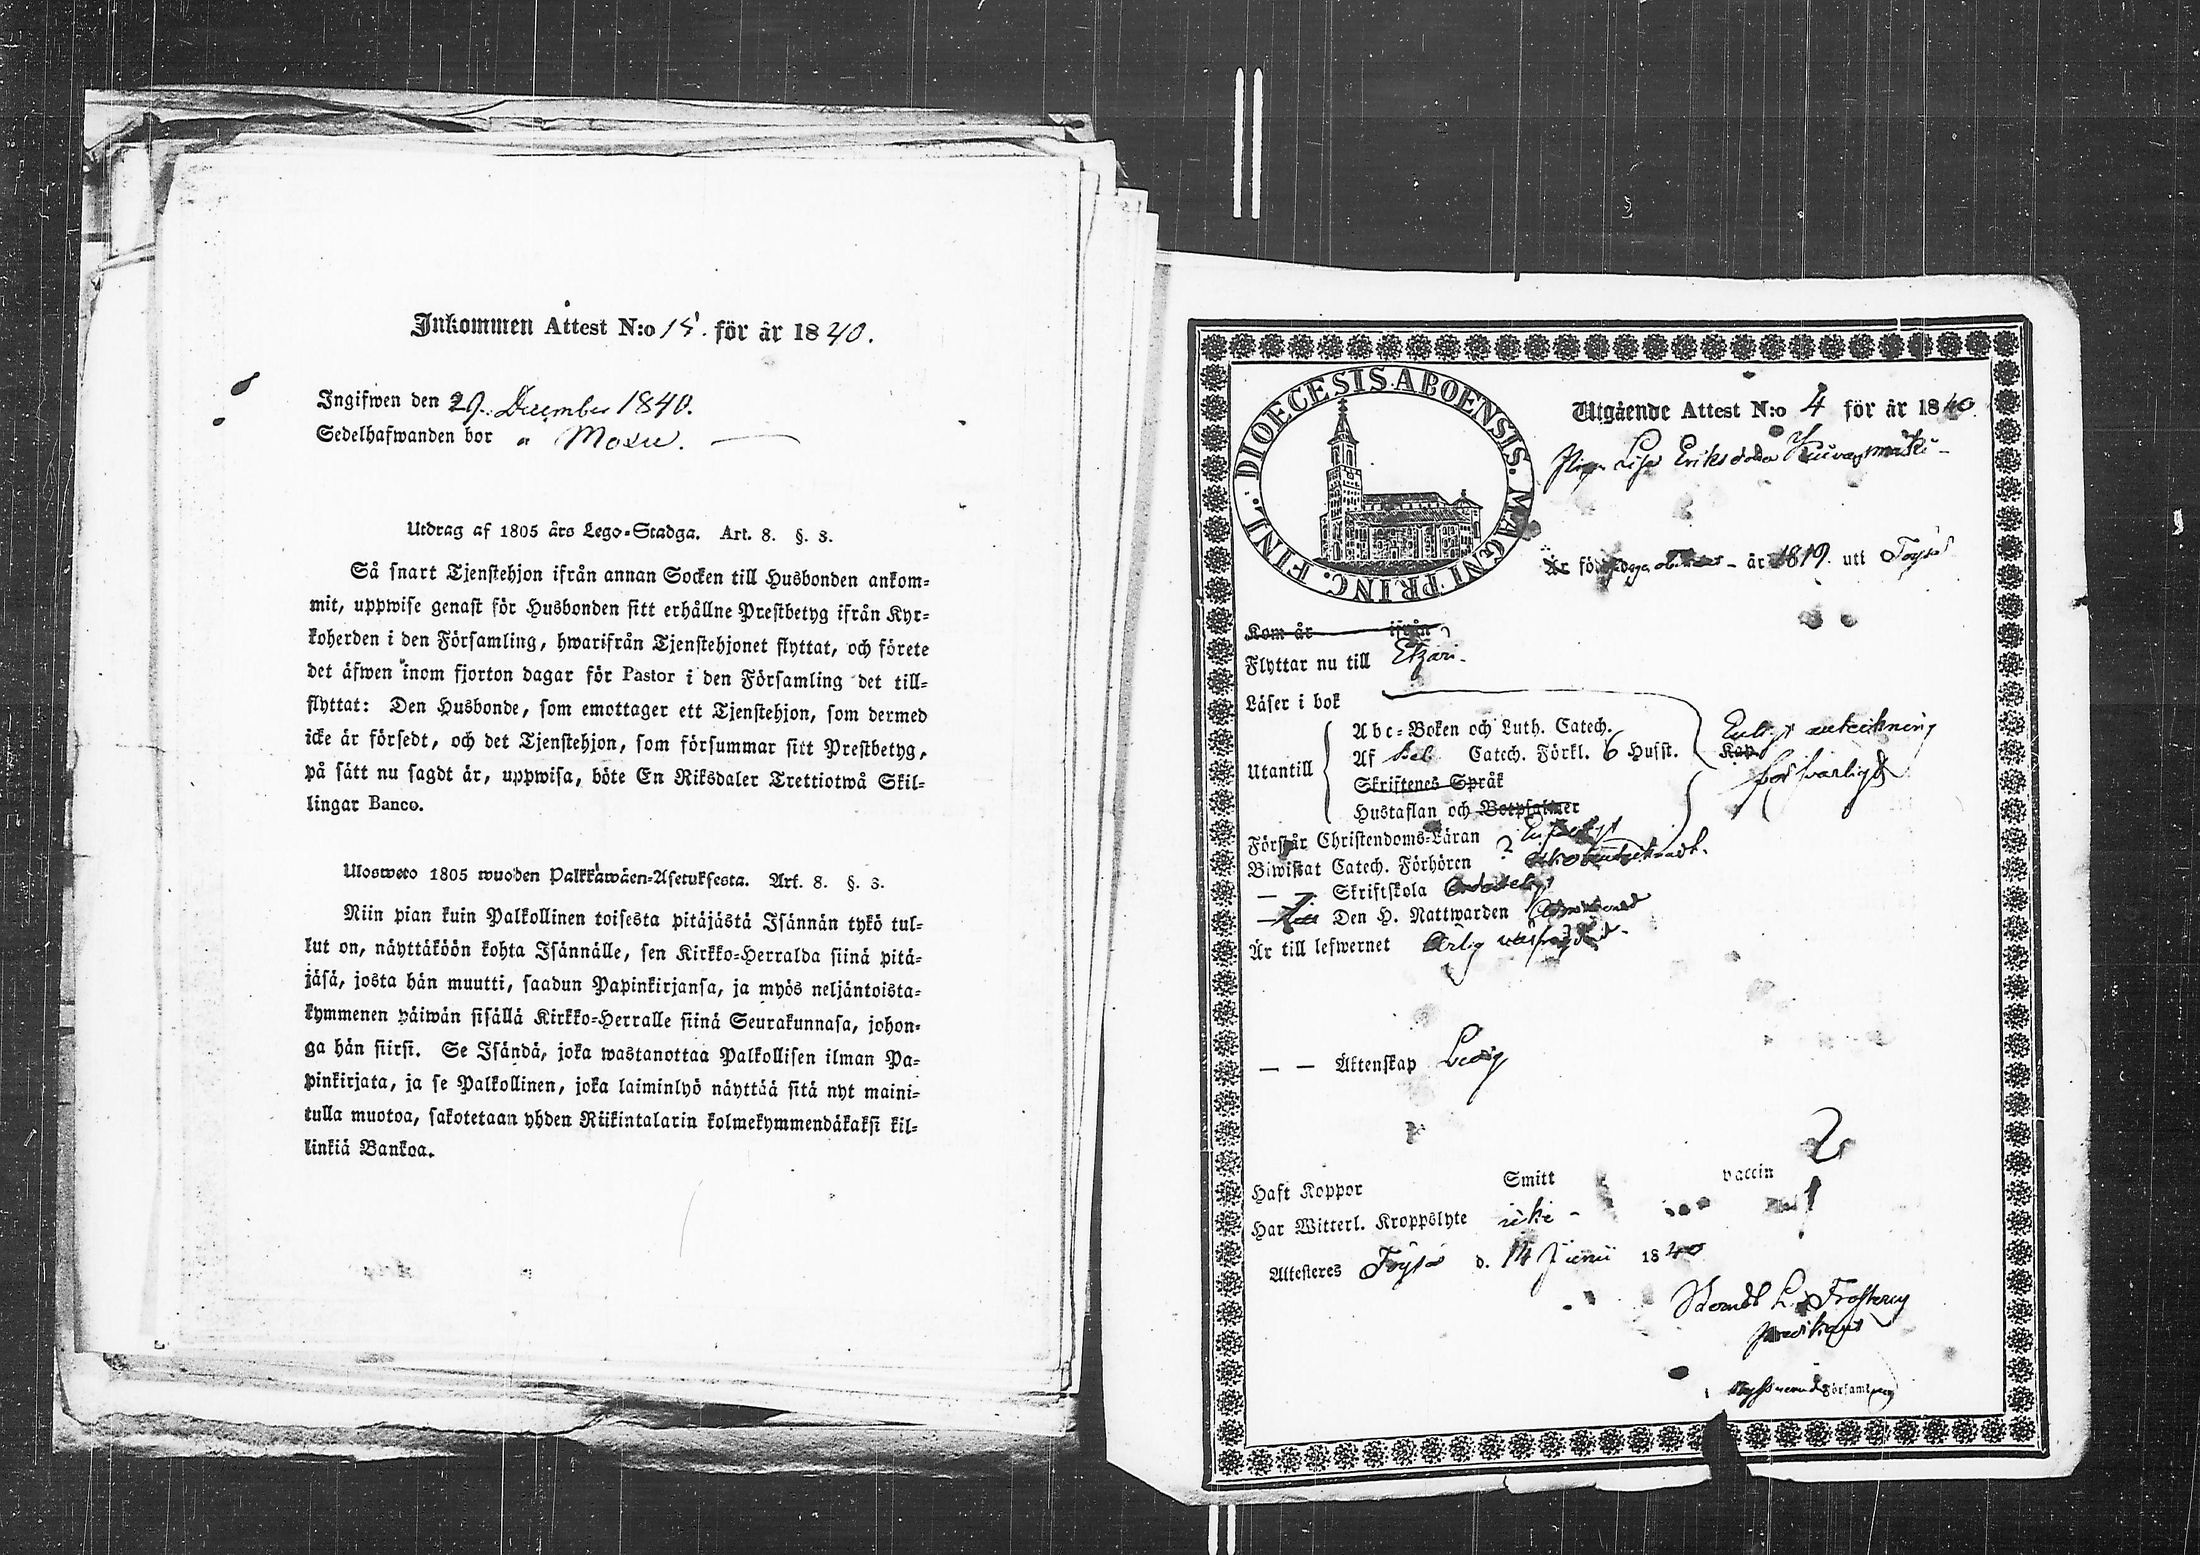 Inkommen Attest N:o 15. för år 1840.
Ingifwen den 29. December 1840.
Sedelhafwanden bor
Utdrag af 1805 års Lego-Stadga. Art. 8. §. 3.
Så snart Tjenstehjon ifrån annan Socken till Husbonden ankom-
mit, uppwise genast för Husbonden sitt erhållne Prestbetyg ifrån Kyr-
koherden i den Församling, hwarifrån Tjenstehjonet flyttat, och förete
det äfwen inom fjorton dagar för Pastor i den Församling det till-
flyttat: Den Husbonde, som emottager ett Tjenstehjon, som dermed
icke är försedt, och det Tjenstehjon, som försummar sitt Prestbetyg,
på sätt nu sagdt är, uppwisa, böte En Riksdaler Trettiotwå Skil-
lingar Banco.
Ulosweto 1805 wuoden Palkkawäen-Asetuksesta. Art. 8. §. 3.
Niin pian kuin Palkollinen toisesta pitäjästä Isännän tykö tul-
lut on, näyttäköön kohta Isännälle, sen Kirkko-Herralda siinä pitä-
jäsä, josta hän muutti, saadun Papinkirjansa, ja myös neljäntoista-
kymmenen päiwän sisällä Kirkko-Herralle siinä Seurakunnasa, johon-
ga hän siirsi. Se Isändä, joka wastanottaa Palkollisen ilman Pa-
pinkirjata, ja se Palkollinen, joka laiminlyö näyttää sitä nyt maini-
tulla muotoa, sakotetaan yhden Riikintalarin kolmekymmendäkaksi kil-
linkiä Bankoa.
FINL. DIOECESIS ABOENSIS. MAGNI PRINC.
Utgående Attest N:o 4 för år 1840.
Lisa Eriksdotter
Är född år 1819. utl Töysä
Kom år ifrån
Flyttar nu till Etzäri.
Läser i bok
Utantill
Abc-Boken och Luth. Catech.
Af Catech. Förkl. 6 Husst. Kap.
Skriftenes Språk
Hustaflan och Botpsalmer
försvarligt
Förstår Christendoms-Läran
Biwistat Catech. Förhören
— — Skriftskola
— Den H. Nattwarden
Är till lefwernet Ärlig
— — Äktenskap Ledig
2
Haft Koppor Smitt vaccin 1
Har Witterl. Kroppslyte icke -
Attesteres Töysä d. 14 Junii 1840
Församling